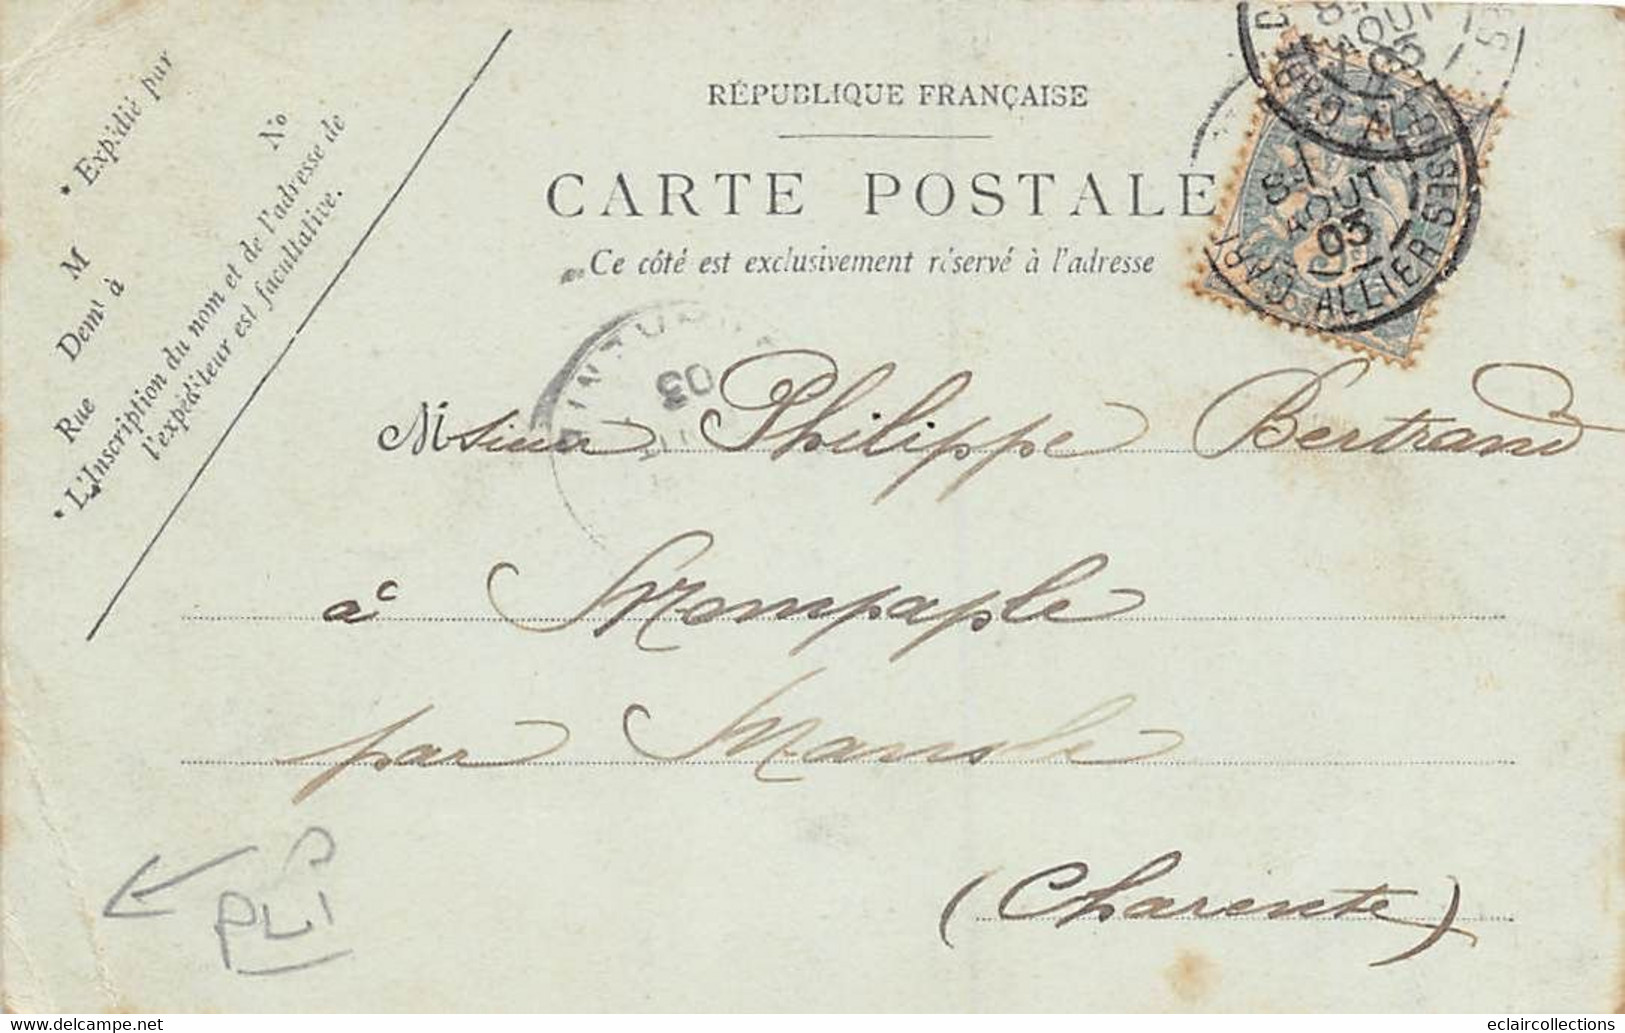 RÉPUBLIQUE FRANÇAISE
CARTE POSTALE
Ce côté est exclusivement réservé à l'adresse
* Expédié par
M
Demt à
Rue
No
* L'Inscription du nom et de l'adresse de
l'expéditeur est facultative.
AOUT
03
GARE
8E
AOUT
03
GARE ALLIER
03
Msieur Philippe Bertrand
à
par Mansle
(Charente)
PLI
eclaircollections